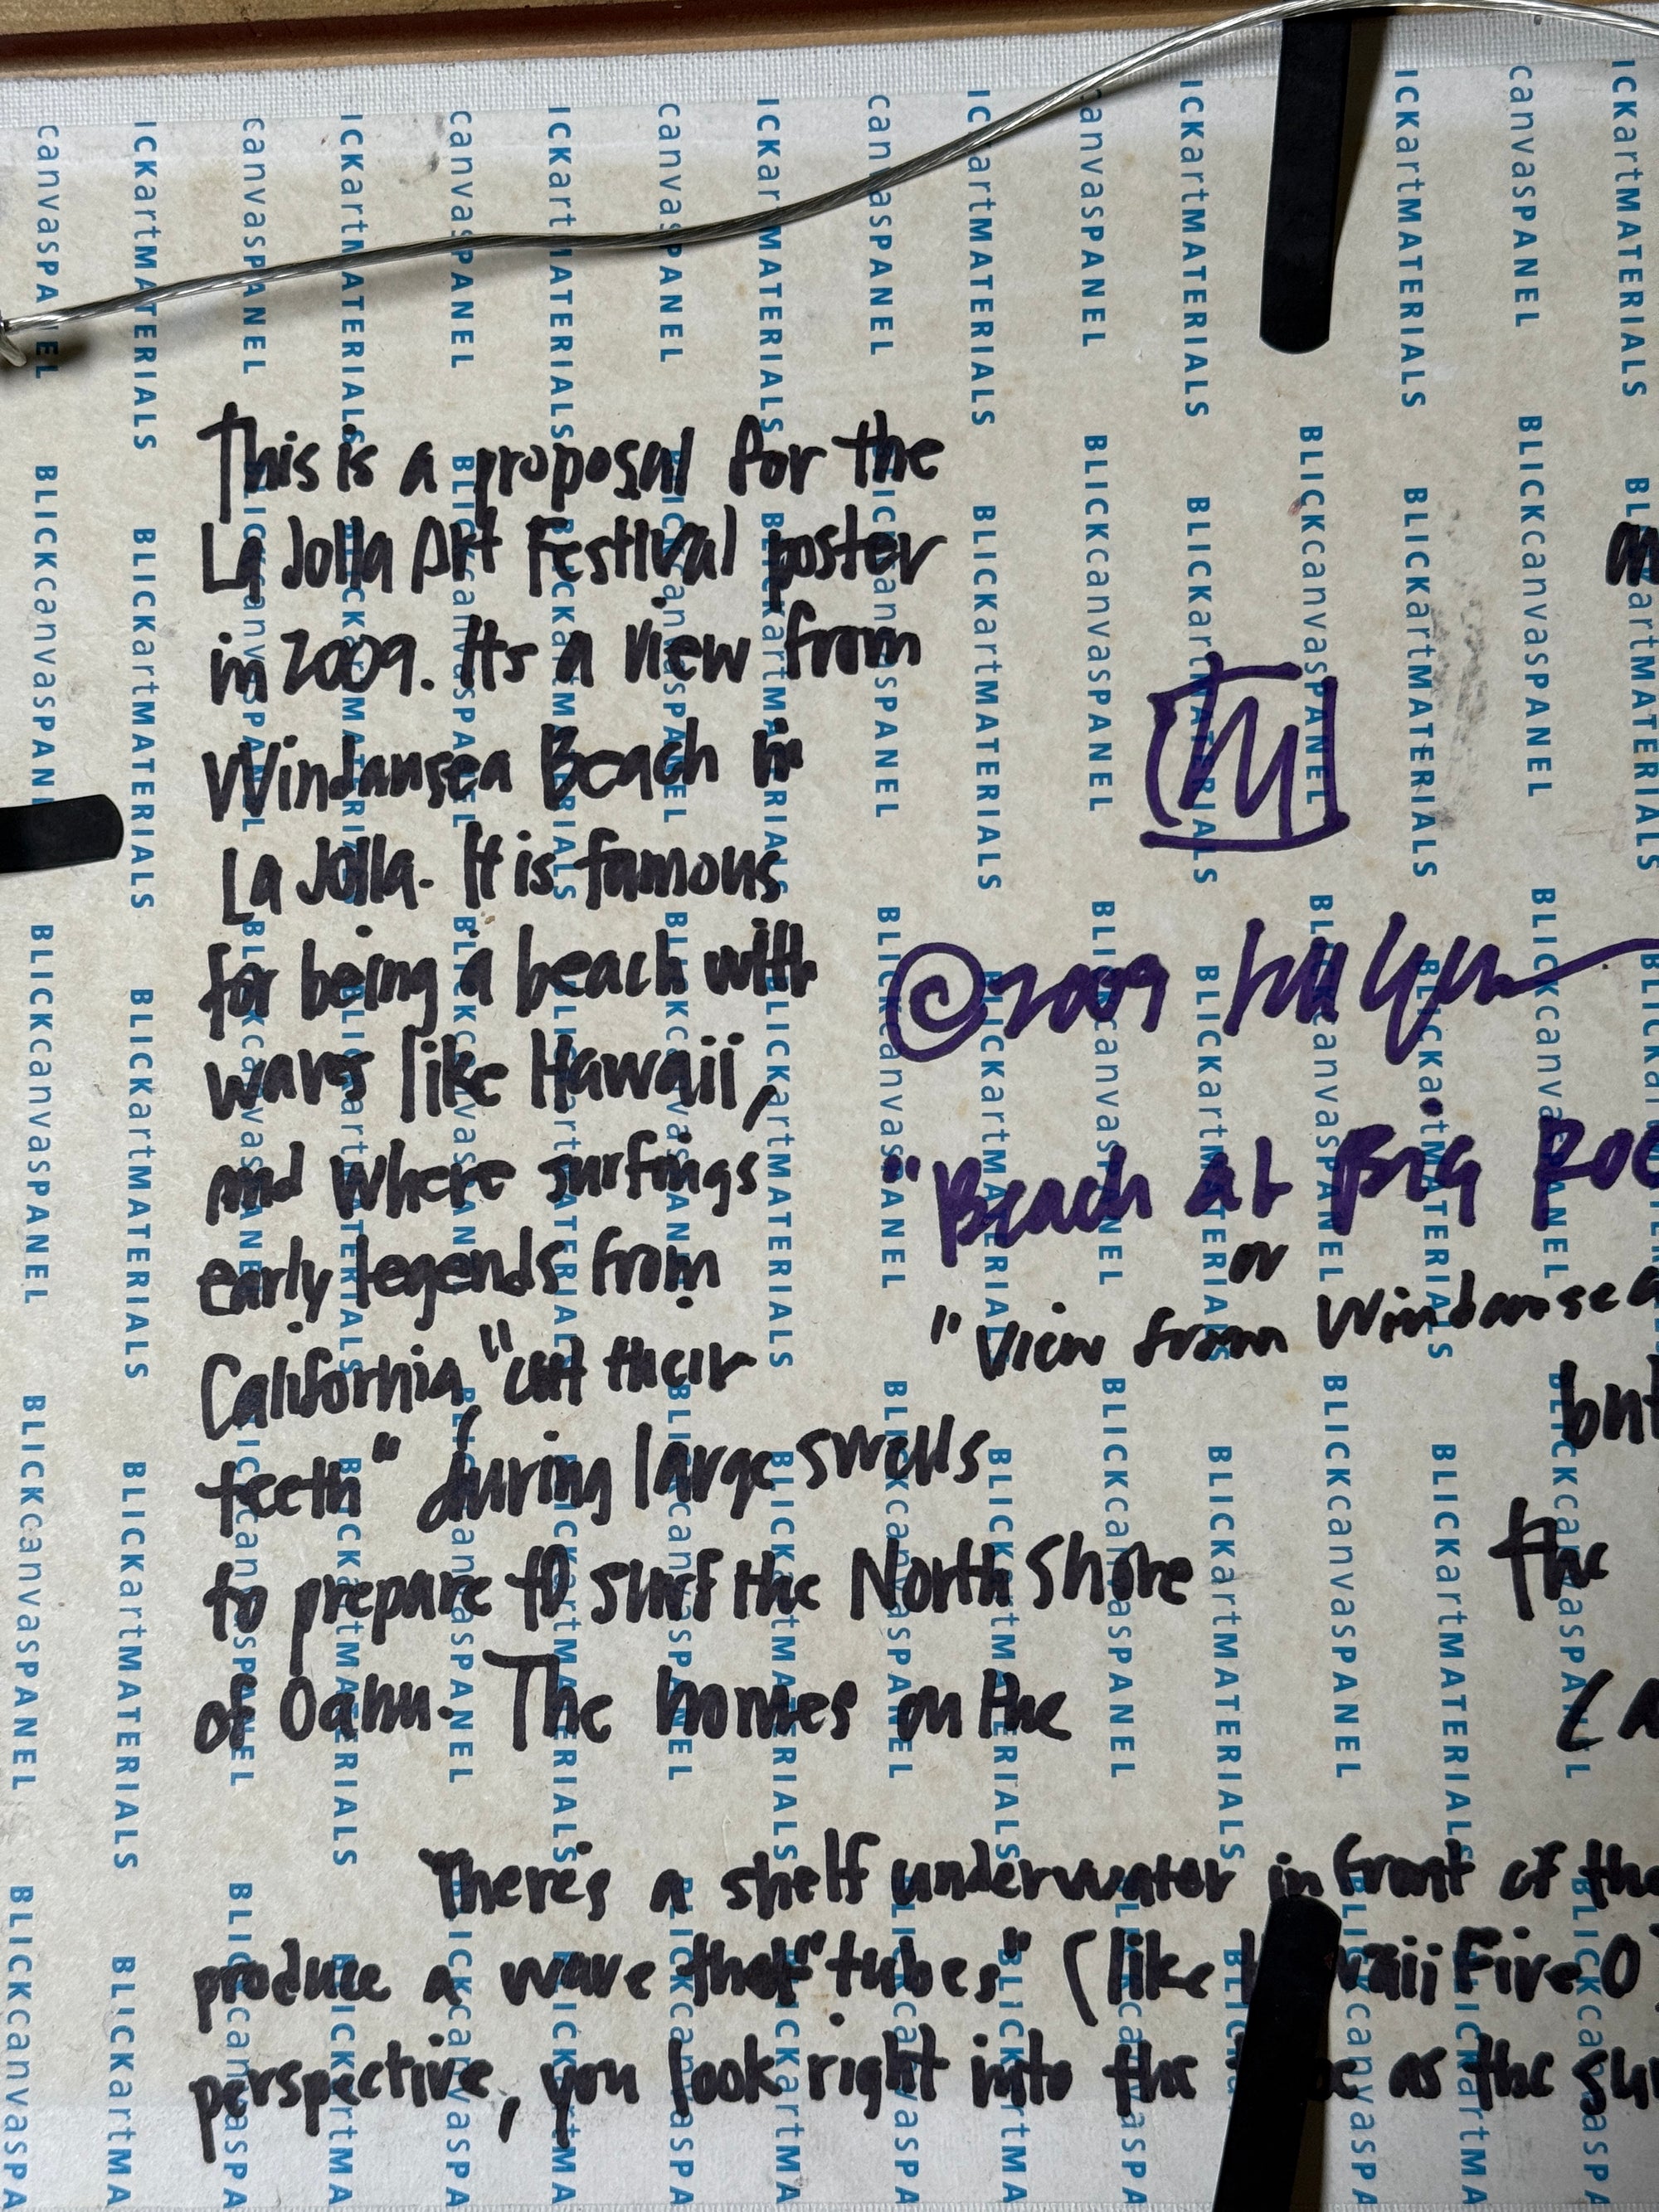 This is a proposal for the
La Jolla Art Festival poster
in 2009. Its a view from
Windansea Beach in
La Jolla. It is famous
for being a beach with
waves like Hawaii,
and where surfings
early legends from
California "cut their
teeth" during large swells
to prepare to surf the North Shore
of Oahu. The homes on the
There's a shelf underwater in front of the
produce a wave that "tubes" (like Hawaii Five O
perspective, you look right into the as the
© 2009
"Beach at Big
or
"View from Windansea
but
the
BLICKcanvasPANEL
BLICKartMATERIALS